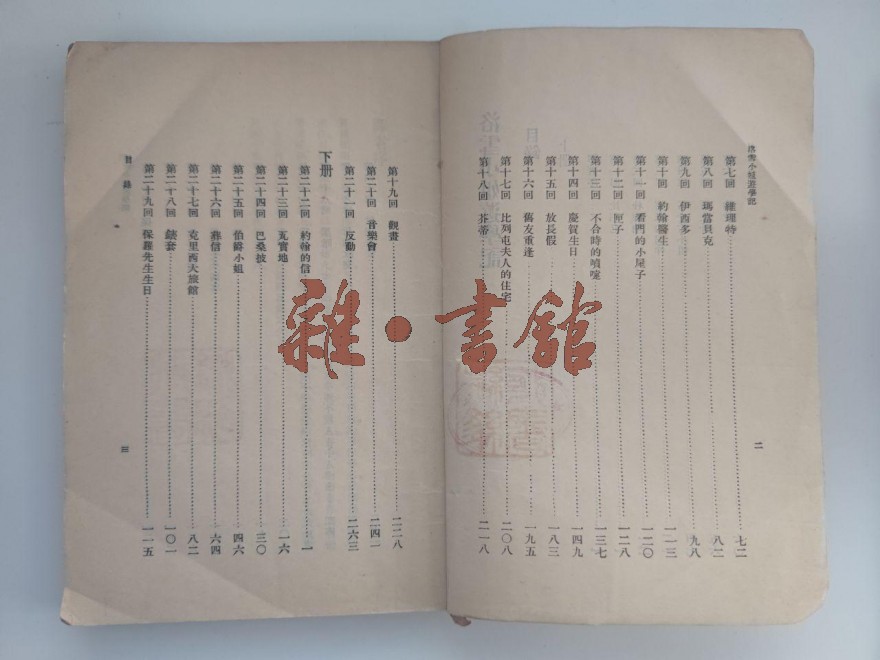 洛雪小姐遊學記
第七回 維理特 七二
第八回 瑪當貝克 八二
第九回 伊西多 九八
第十回 約翰醫生 一一三
第十一回 看門的小屋子 一二〇
第十二回 匣子 一二八
第十三回 不合時的噴嚏 一三七
第十四回 慶賀生日 一四九
第十五回 放長假 一八三
第十六回 舊友重逢 一九五
第十七回 比列屯夫人的住宅 二〇八
第十八回 芬蒂 二一八
二
第十九回 觀畫 二二八
第二十回 音樂會 二四一
第二十一回 反動 二六三
下册
第二十二回 約翰的信 一
第二十三回 瓦實地 一六
第二十四回 巴桑披 三〇
第二十五回 伯爵小姐 四六
第二十六回 葬信 六四
第二十七回 克里西大旅館 八二
第二十八回 錶套 一〇一
第二十九回 保羅先生生日 一一五
目錄
三
雜·書館